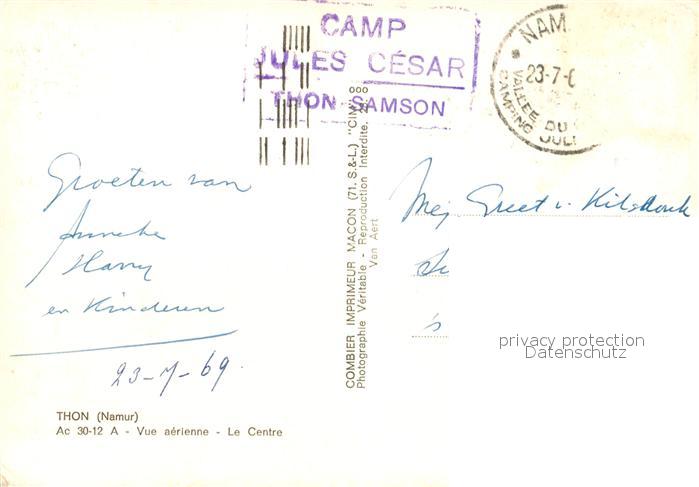 CAMP
JULES CÉSAR
THON-SAMSON
NAM
23-7-6
VALLEE DU
CAMPING JULE
Groeten van
Anneke
Harry
en Kinderen
23-7-69.
THON (Namur)
Ac 30-12 A - Vue aérienne - Le Centre
COMBIER IMPRIMEUR MACON (71. S.&L.) "CIM"
Photographie Véritable - Reproduction Interdite.
Van Aert
Mej Greet v.
's
privacy protection
Datenschutz